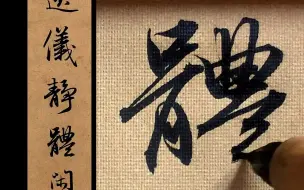 逸儀靜體閑
體